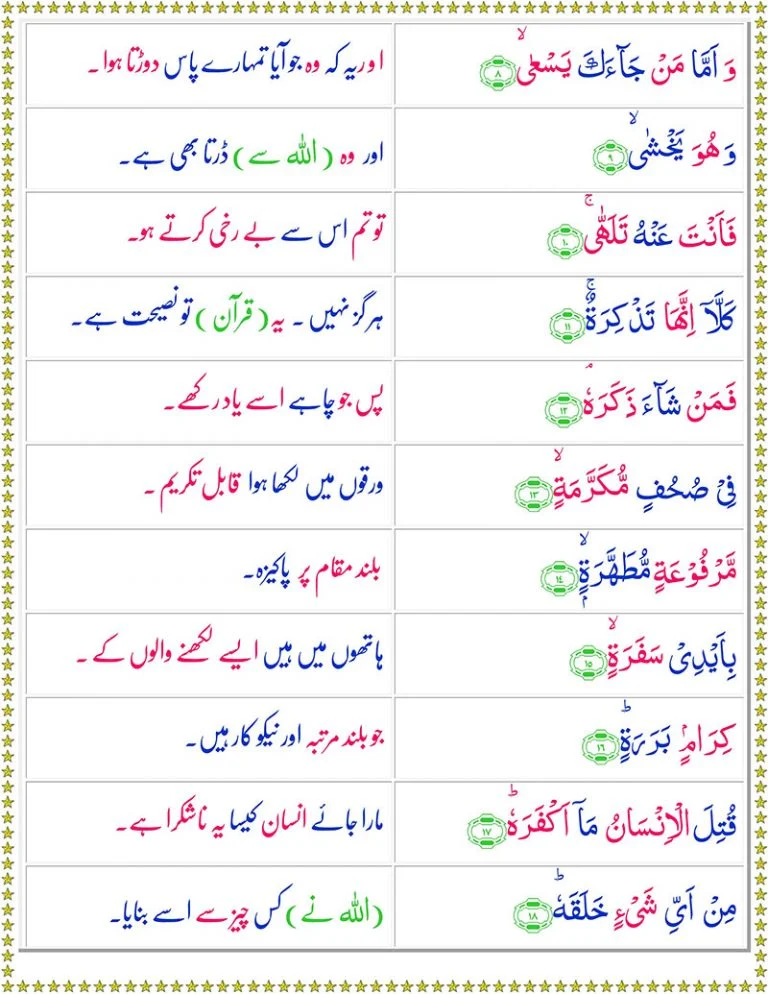 وَ اَمَّا مَنْ جَآءَكَ يَسْعٰىۙ ﴿۸﴾
ا وریہ کہ وہ جو آیا تمہارے پاس دوڑتا ہوا ۔
وَ هُوَ يَخْشٰىۙ ﴿۹﴾
اور وہ ( اللہ سے ) ڈرتا بھی ہے۔
فَاَنْتَ عَنْهُ تَلَهّٰىۚ ﴿۱۰﴾
تو تم اس سے بے رخی کرتے ہو۔
كَلَّاۤ اِنَّهَا تَذْكِرَةٌۚ ﴿۱۱﴾
ہرگز نہیں ۔ یہ ( قرآن ) تو نصیحت ہے۔
فَمَنْ شَآءَ ذَكَرَهٗۘ ﴿۱۲﴾
پس جو چاہے اسے یاد رکھے۔
فِىْ صُحُفٍ مُّكَرَّمَةٍۙ ﴿۱۳﴾
ورقوں میں لکھا ہوا قابل تکریم ۔
مَّرْفُوْعَةٍ مُّطَهَّرَةٍۭۙ ﴿۱۴﴾
بلند مقام پر پاکیزہ۔
بِاَيْدِىْ سَفَرَةٍۙ ﴿۱۵﴾
ہاتھوں میں ہیں ایسے لکھنے والوں کے ۔
كِرَامٍۭ بَرَرَةٍؕ ﴿۱۶﴾
جو بلند مرتبہ اور نیکو کار ہیں۔
قُتِلَ الْاِنْسَانُ مَاۤ اَكْفَرَهٗؕ ﴿۱۷﴾
مارا جائے انسان کیسا یہ ناشکرا ہے۔
مِنْ اَىِّ شَىْءٍ خَلَقَهٗؕ ﴿۱۸﴾
(اللہ نے) کس چیز سے اسے بنایا۔